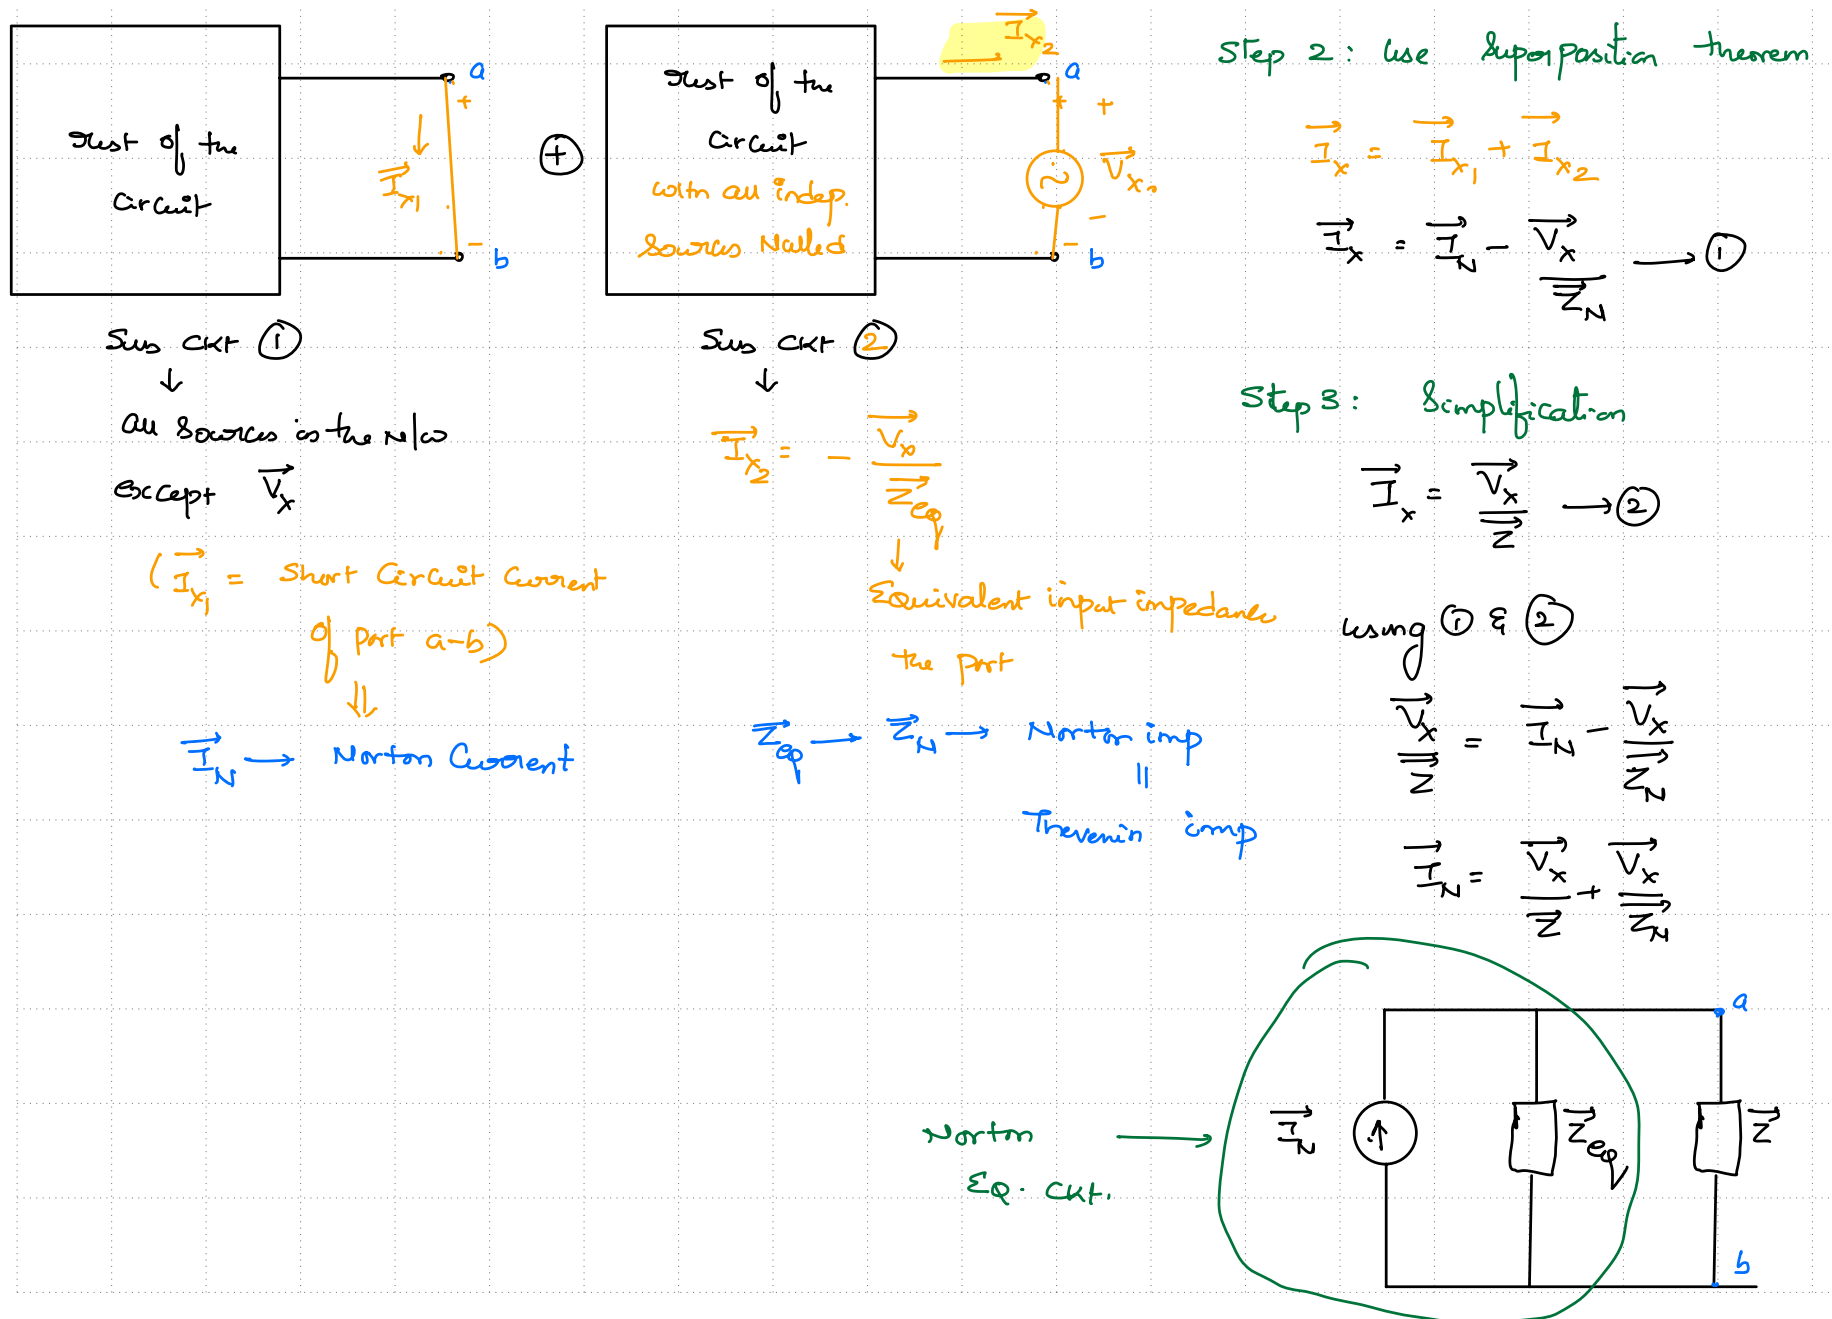 rest of the
circuit
a
+
I⃗x1
-
b
+
rest of the
circuit
with all indep.
sources Nulled
I⃗x2
a
+ +
V⃗x
-
-
b
Sub ckt ①
↓
all sources in the N/w
except V⃗x
(I⃗x1 = Short Circuit Current
of port a-b)
⇓
I⃗N → Norton Current
Sub ckt ②
↓
I⃗x2 = - V⃗x / Z⃗eq
↓
Equivalent input impedance
the port
Z⃗eq → Z⃗N → Norton imp
||
Thevenin imp
Step 2: Use Superposition theorem
I⃗x = I⃗x1 + I⃗x2
I⃗x = I⃗N - V⃗x / Z⃗N → ①
Step 3: Simplification
I⃗x = V⃗x / Z⃗ → ②
Using ① & ②
V⃗x / Z⃗ = I⃗N - V⃗x / Z⃗N
I⃗N = V⃗x / Z⃗ + V⃗x / Z⃗N
Norton →
EQ. CKt.
I⃗N
Z⃗eq
Z⃗
a
b